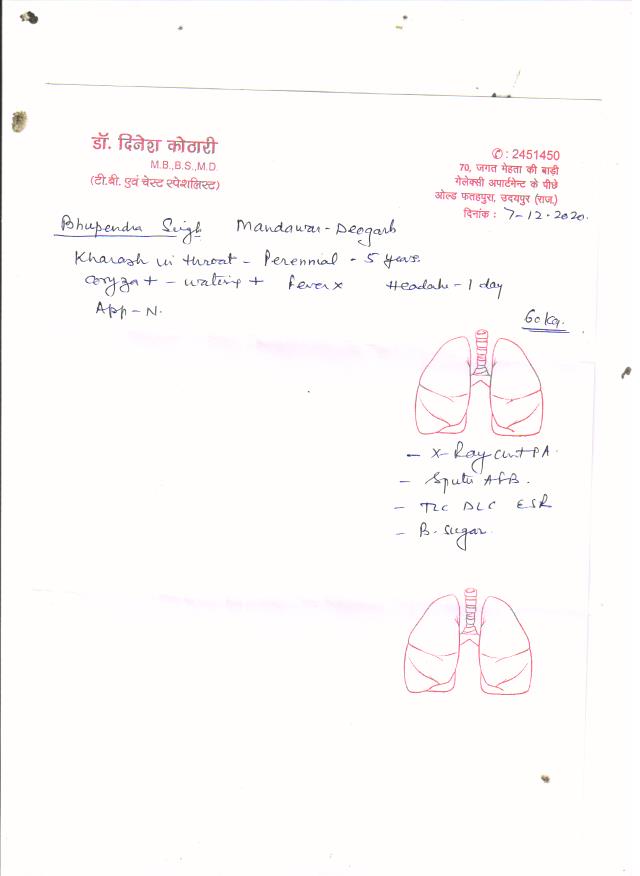 डॉ. दिनेश कोठारी
M.B.,B.S.,M.D.
(टी.बी. एवं चेस्ट स्पेशलिस्ट)
✆ : 2451450
70, जगत मेहता की बाड़ी
गेलेक्सी अपार्टमेन्ट के पीछे
ओल्ड फतहपुरा, उदयपुर (राज.)
दिनांक : 7-12-2020.
Bhupendra Singh Mandawar-Deogarh
Kharash in throat - Perennial - 5 years
coryza + - watery + fever x Headache - 1 day
App - N.
60 kg.
- X-Ray Chest PA.
- Sputum AFB.
- TLC DLC ESR
- B. Sugar.